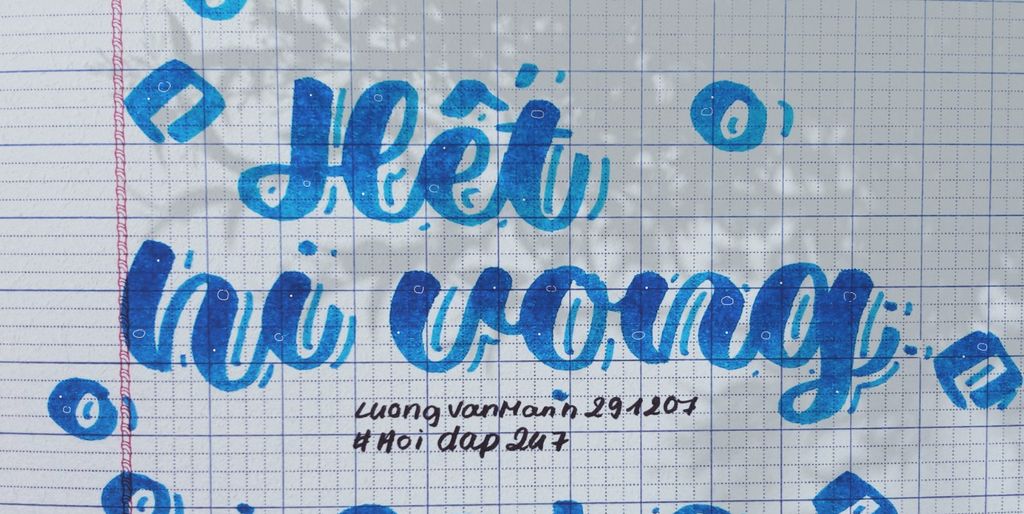 Hết
hi vong
LuongVanMann291207
#Hoi dap 247